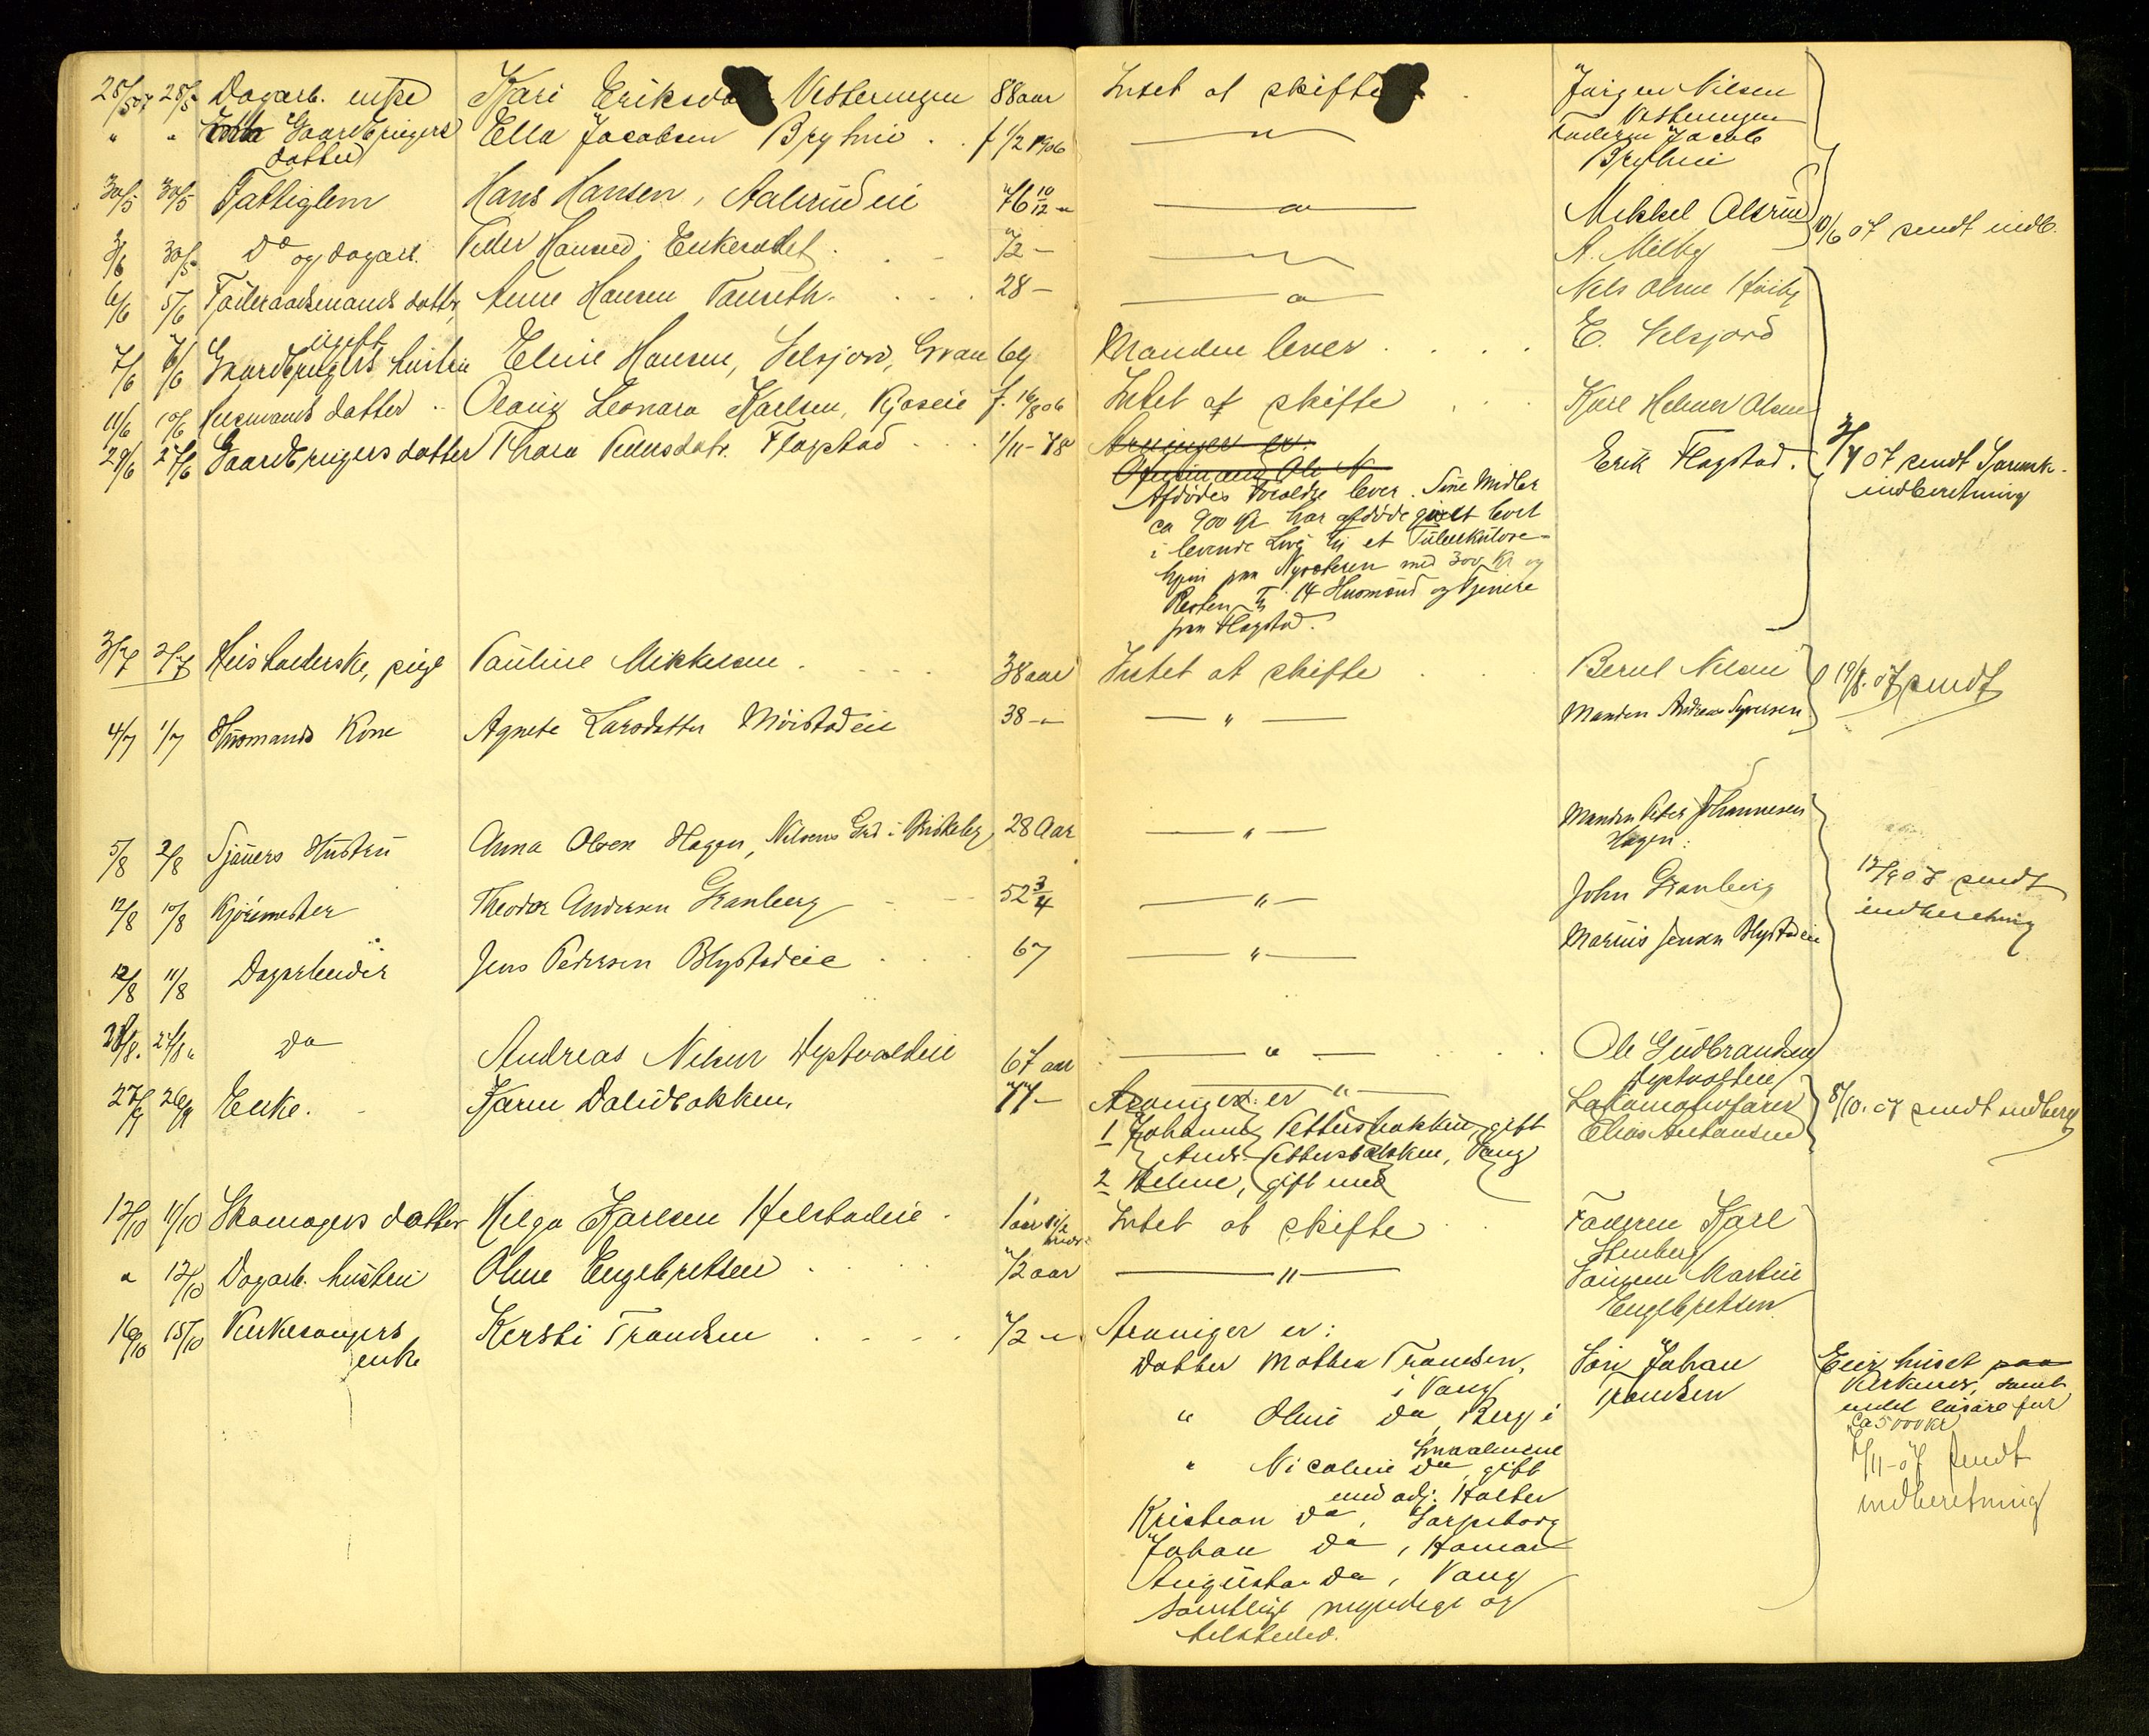 28/5 07 28/5 Dagarb. enke Kari Eriksda Vesteringen 88 aar Intet at skifte Jørgen Nilsen
Vesteringen
" " Gaardbrugers Ella Jacobsen Bryhni f 1/2 1906 — " — Faderen Jacob
datter Bryhni
30/5 30/5 Fattiglem Hans Hansen, Aalsrudeie 76 10/12 " — " — Mikkel Alsrud
10/6 07 sendt indb.
3/6 30/5 Do og dagarb. Peder Hansen Enkerødet 72 — — " — A. Melby
6/6 5/6 Føderaadsmands datter, Anne Hansen 28 — — " — Nels Olsen Høiby
ugift
7/6 6/6 Gaardbrugers hustru Eline Hansen, Selsjord, Gran 69 Manden lever E. Selsjord
11/6 10/6 Husmands datter Leonara Karlsen, f. 16/8 06 Intet at skifte Karl Helmer Olsen
29/6 27/6 Gaardbrugers datter Thora Pedersdatr. Flagstad 1/11 - 78 Arvinger er: Erik Flagstad.
3/7 07 sendt
indberetning
Afdødes Forældre lever. Sine Midler
ca 900 Kr har afdøde givet bort
i levende Live til et Tuberkulose-
hjem paa Nysæteren med 300 Kr og
Resten til 14 Husmænd og Tjenere
paa Flagstad.
3/7 2/7 Husholderske, pige Pauline Mikkelsen 38 aar Intet at skifte Bernt Nilsen
19/8. 07 sendt
4/7 1/7 Husmands Kone Agnete Larsdatter Møistadeie 38 — " — " — Manden Andreas Syversen
5/8 2/8 Sjauers Hustru Anna Olsen Hagen, Nilsens Grd i Briskeby 28 Aar — " — Manden Peder Johannesen
Hagen.
12/8 10/8 Kjøremester Theodor Andersen Granberg 52 3/4 — " — John Granberg
12/9 07 sendt
indberetning
12/8 11/8 Dagarbeider Jens Pedersen Blystadeie 67 — " — Marius Jensen Blystadeie
28/8. 24/8 " Do Andreas Nilsen 67 aar — " — Ole Gudbrandsen
27/9 26/9 Enke. Karen Dalidbakken, 77 — Arvinger er — " — Lokomotivfører
Elias Antonsen
8/10. 07 sendt indberg
1 Johanne Pettersbakken, gift
Andr. Pettersbakken, Vang
2 Helene, gift med
12/10 11/10 Skomagers datter Helga Karlsen 1 aar Intet at skifte Faderen Karl
Stenberg
" 12/10 Dagarb. hustru Oline Engebretsen 72 aar — " — Sønnen Martin
Engebretsen
16/10 15/10 Kirkesangers Kersti Trondsen 72 — " Arvinger er:
enke
Datter Mathea Trondsen, Søn Johan
i Vang Trondsen
" Oline do, Berg i
Smaalenene
" Nicoline do, gift
med adj. Holter
Kristian do, Sarpsborg
Johan do, Hamar
Augusta do, Vang
samtlige myndige og
tilstede.
Eier huset paa
Kirkenær, samt
endel løsøre for
ca 5000 Kr
/11 - 07 sendt
indberetning